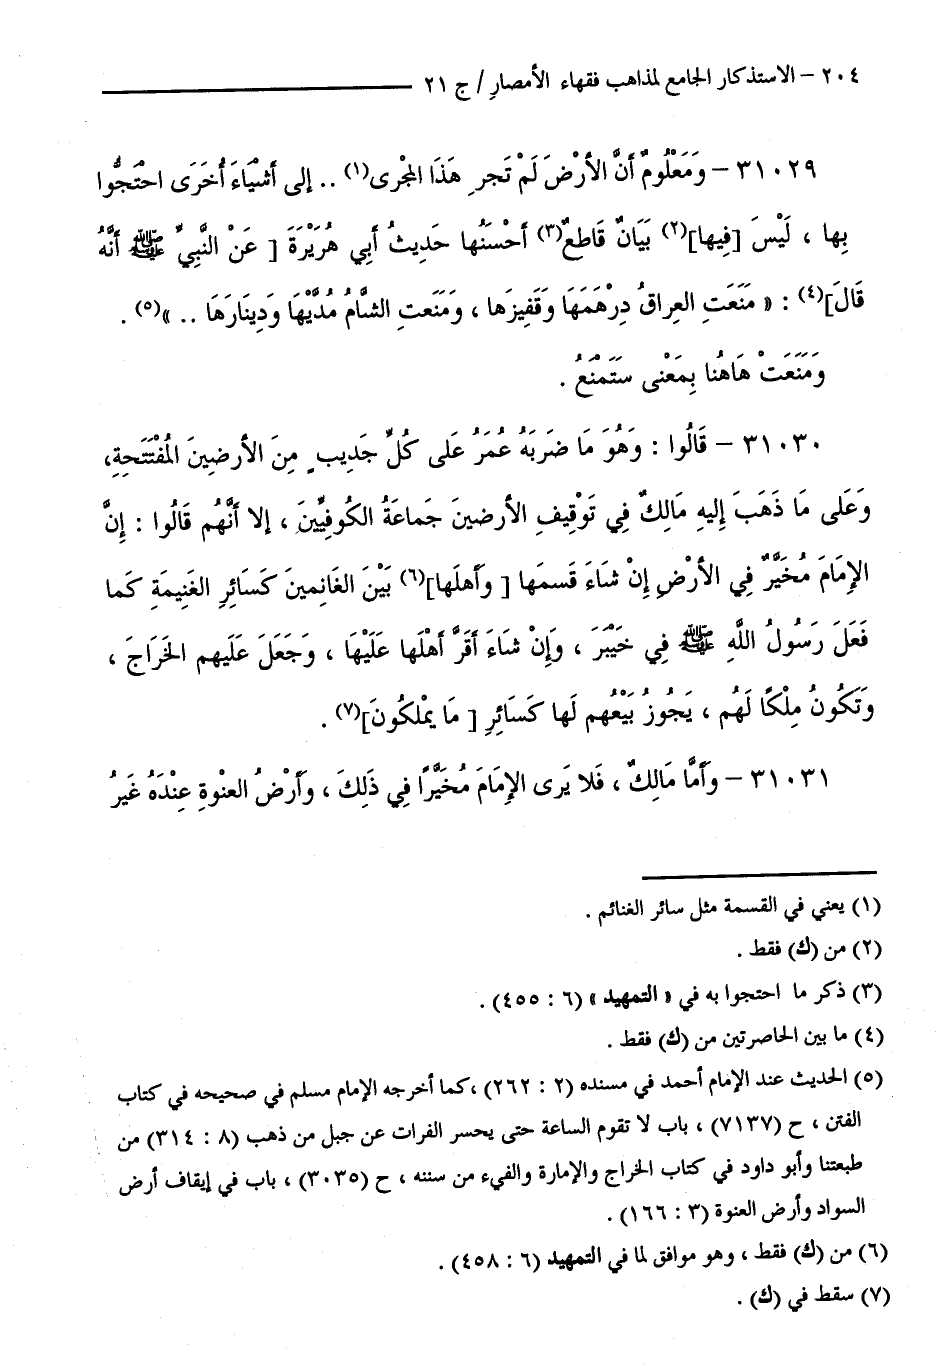 ٢٠٤ – الاستذكار الجامع لمذاهب فقهاء الأمصار / ج ٢١
٣١٠٢٩ – وَمَعْلُومٌ أَنَّ الأَرْضَ لَمْ تَجرِ هَذَا المَجْرى(١) .. إلى أَشْيَاءَ أُخَرَى احتَجُّوا
بِها ، لَيْسَ [فِيها](٢) بَيَانٌ قَاطعٌ(٣) أحْسَنُها حَدِيثُ أبِي هُرَيْرَةَ [ عَنْ النَّبِيِّ ﷺ أنَّهُ
قَالَ](٤) : « مَنَعَتِ العِراقُ دِرْهَمَهَا وَقَفِيزَها ، وَمَنَعتِ الشَّامُ مُدَّيْهَا وَدِينَارَهَا .. »(٥) .
وَمَنَعَتْ هَاهُنا بِمَعْنى سَتَمْنَعُ .
٣١٠٣٠ – قَالُوا : وَهُوَ مَا ضَرَبَهُ عُمَرُ عَلى كُلِّ جَدِيبٍ مِنَ الأرضِينَ المُفْتَتَحِةِ،
وَعَلَى مَا ذَهَبَ إِليهِ مَالِكٌ فِي تَوْقِيفِ الأرضينَ جَماعَةُ الكُوفِيِّينَ ، إلا أنَّهُم قَالُوا : إِنَّ
الإِمَامَ مُخَيَّرٌ فِي الأَرْضِ إِنْ شَاءَ قَسمَها [ وأهلَها](٦) بَيْنَ الغَانِمينَ كَسَائِرِ الغَنِيمَةِ كَما
فَعَلَ رَسُولُ اللَّهِ ﷺ فِي خَيْبَرَ ، وَإِنْ شَاءَ أقَرَّ أهْلَها عَلَيْهَا ، وَجَعَلَ عَلَيهم الخَراجَ ،
وَتَكُونُ مِلْكًا لَهُم ، يَجُوزُ بَيْعُهم لَها كَسَائِرِ [ مَا يَمْلكُونَ](٧) .
٣١٠٣١ – وَأَمَّا مَالِكٌ ، فَلا يَرى الإِمَامَ مُخَيَّرًا فِي ذَلِكَ ، وَأَرْضُ العنْوةِ عِنْدَهُ غَيرُ
(١) يعني في القسمة مثل سائر الغنائم .
(٢) من (ك) فقط .
(٣) ذكر ما احتجوا به في « التمهيد » (٦ : ٤٥٥) .
(٤) ما بين الحاصرتين من (ك) فقط .
(٥) الحديث عند الإمام أحمد في مسنده (٢ : ٢٦٢) ، كما أخرجه الإمام مسلم في صحيحه في كتاب
الفتن ، ح (٧١٣٧) ، باب لا تقوم الساعة حتى يحسر الفرات عن جبل من ذهب (٨ : ٣١٤) من
طبعتنا وأبو داود في كتاب الخراج والإمارة والفيء من سننه ، ح (٣٠٣٥) ، باب في إيقاف أرض
السواد وأرض العنوة (٣ : ١٦٦) .
(٦) من (ك) فقط ، وهو موافق لما في التمهيد (٦ : ٤٥٨) .
(٧) سقط في (ك) .